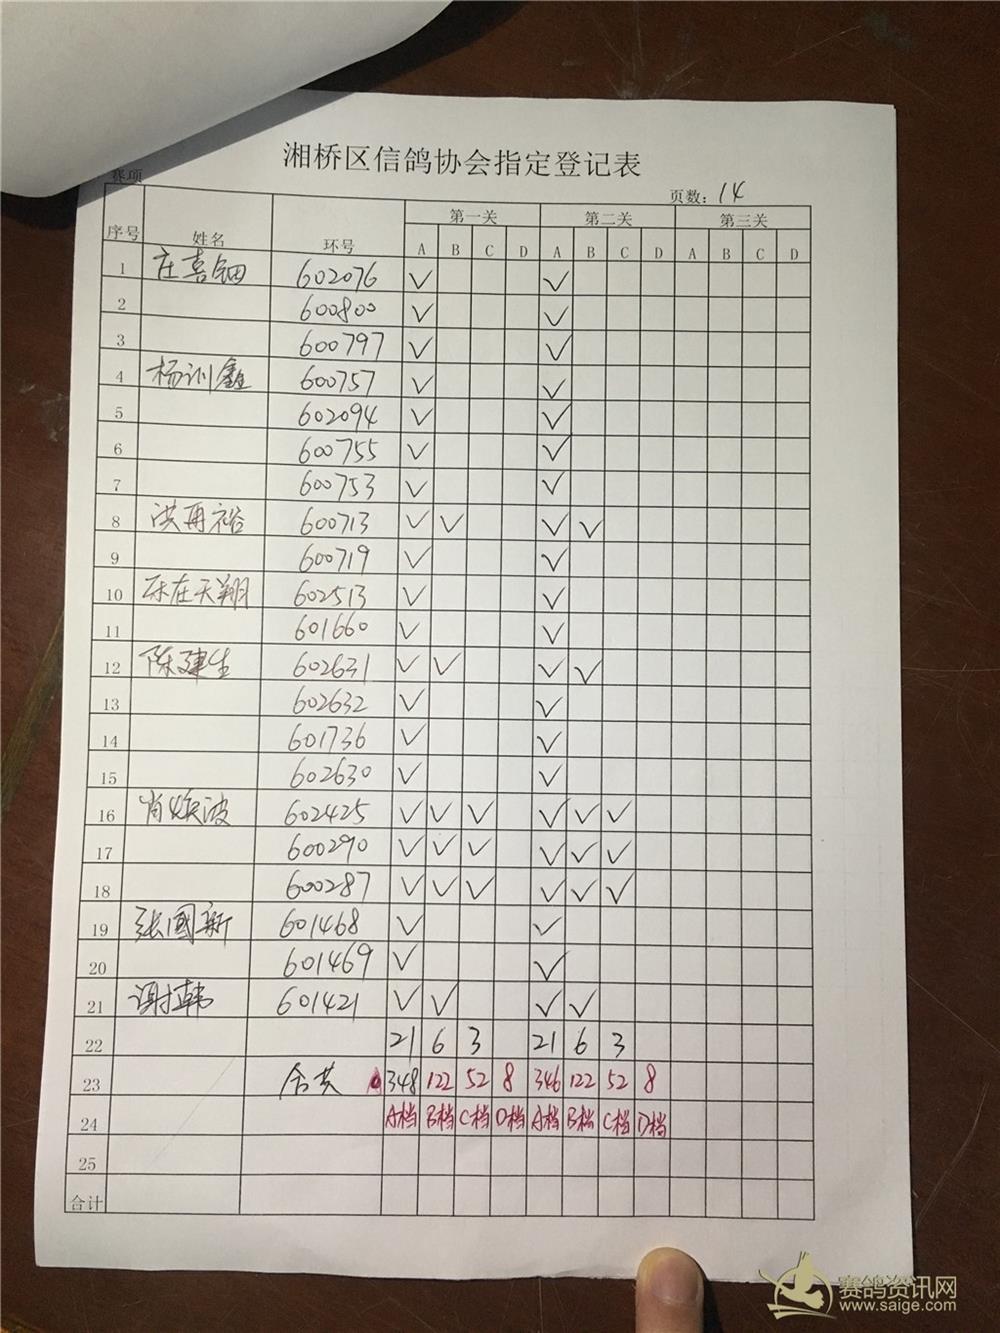 湘桥区信鸽协会指定登记表
赛项
页数：14
序号 姓名 环号 第一关 第二关 第三关
A B C D A B C D A B C D
1 庄喜钿 602076 ✓ ✓
2 600800 ✓ ✓
3 600797 ✓ ✓
4 杨训鑫 600757 ✓ ✓
5 602094 ✓ ✓
6 600755 ✓ ✓
7 600753 ✓ ✓
8 洪再裕 600713 ✓ ✓ ✓ ✓
9 600719 ✓ ✓
10 乐在天翔 602513 ✓ ✓
11 601660 ✓ ✓
12 陈建生 602631 ✓ ✓ ✓ ✓
13 602632 ✓ ✓
14 601736 ✓ ✓
15 602630 ✓ ✓
16 肖焕波 602425 ✓ ✓ ✓ ✓ ✓ ✓
17 600290 ✓ ✓ ✓ ✓ ✓ ✓
18 600287 ✓ ✓ ✓ ✓ ✓ ✓
19 张國新 601468 ✓ ✓
20 601469 ✓ ✓
21 谢韩 601421 ✓ ✓ ✓ ✓
22 21 6 3 21 6 3
23 合共 348 122 52 8 346 122 52 8
24 A档 B档 C档 D档 A档 B档 C档 D档
25
合计
赛鸽资讯网
www.saige.com